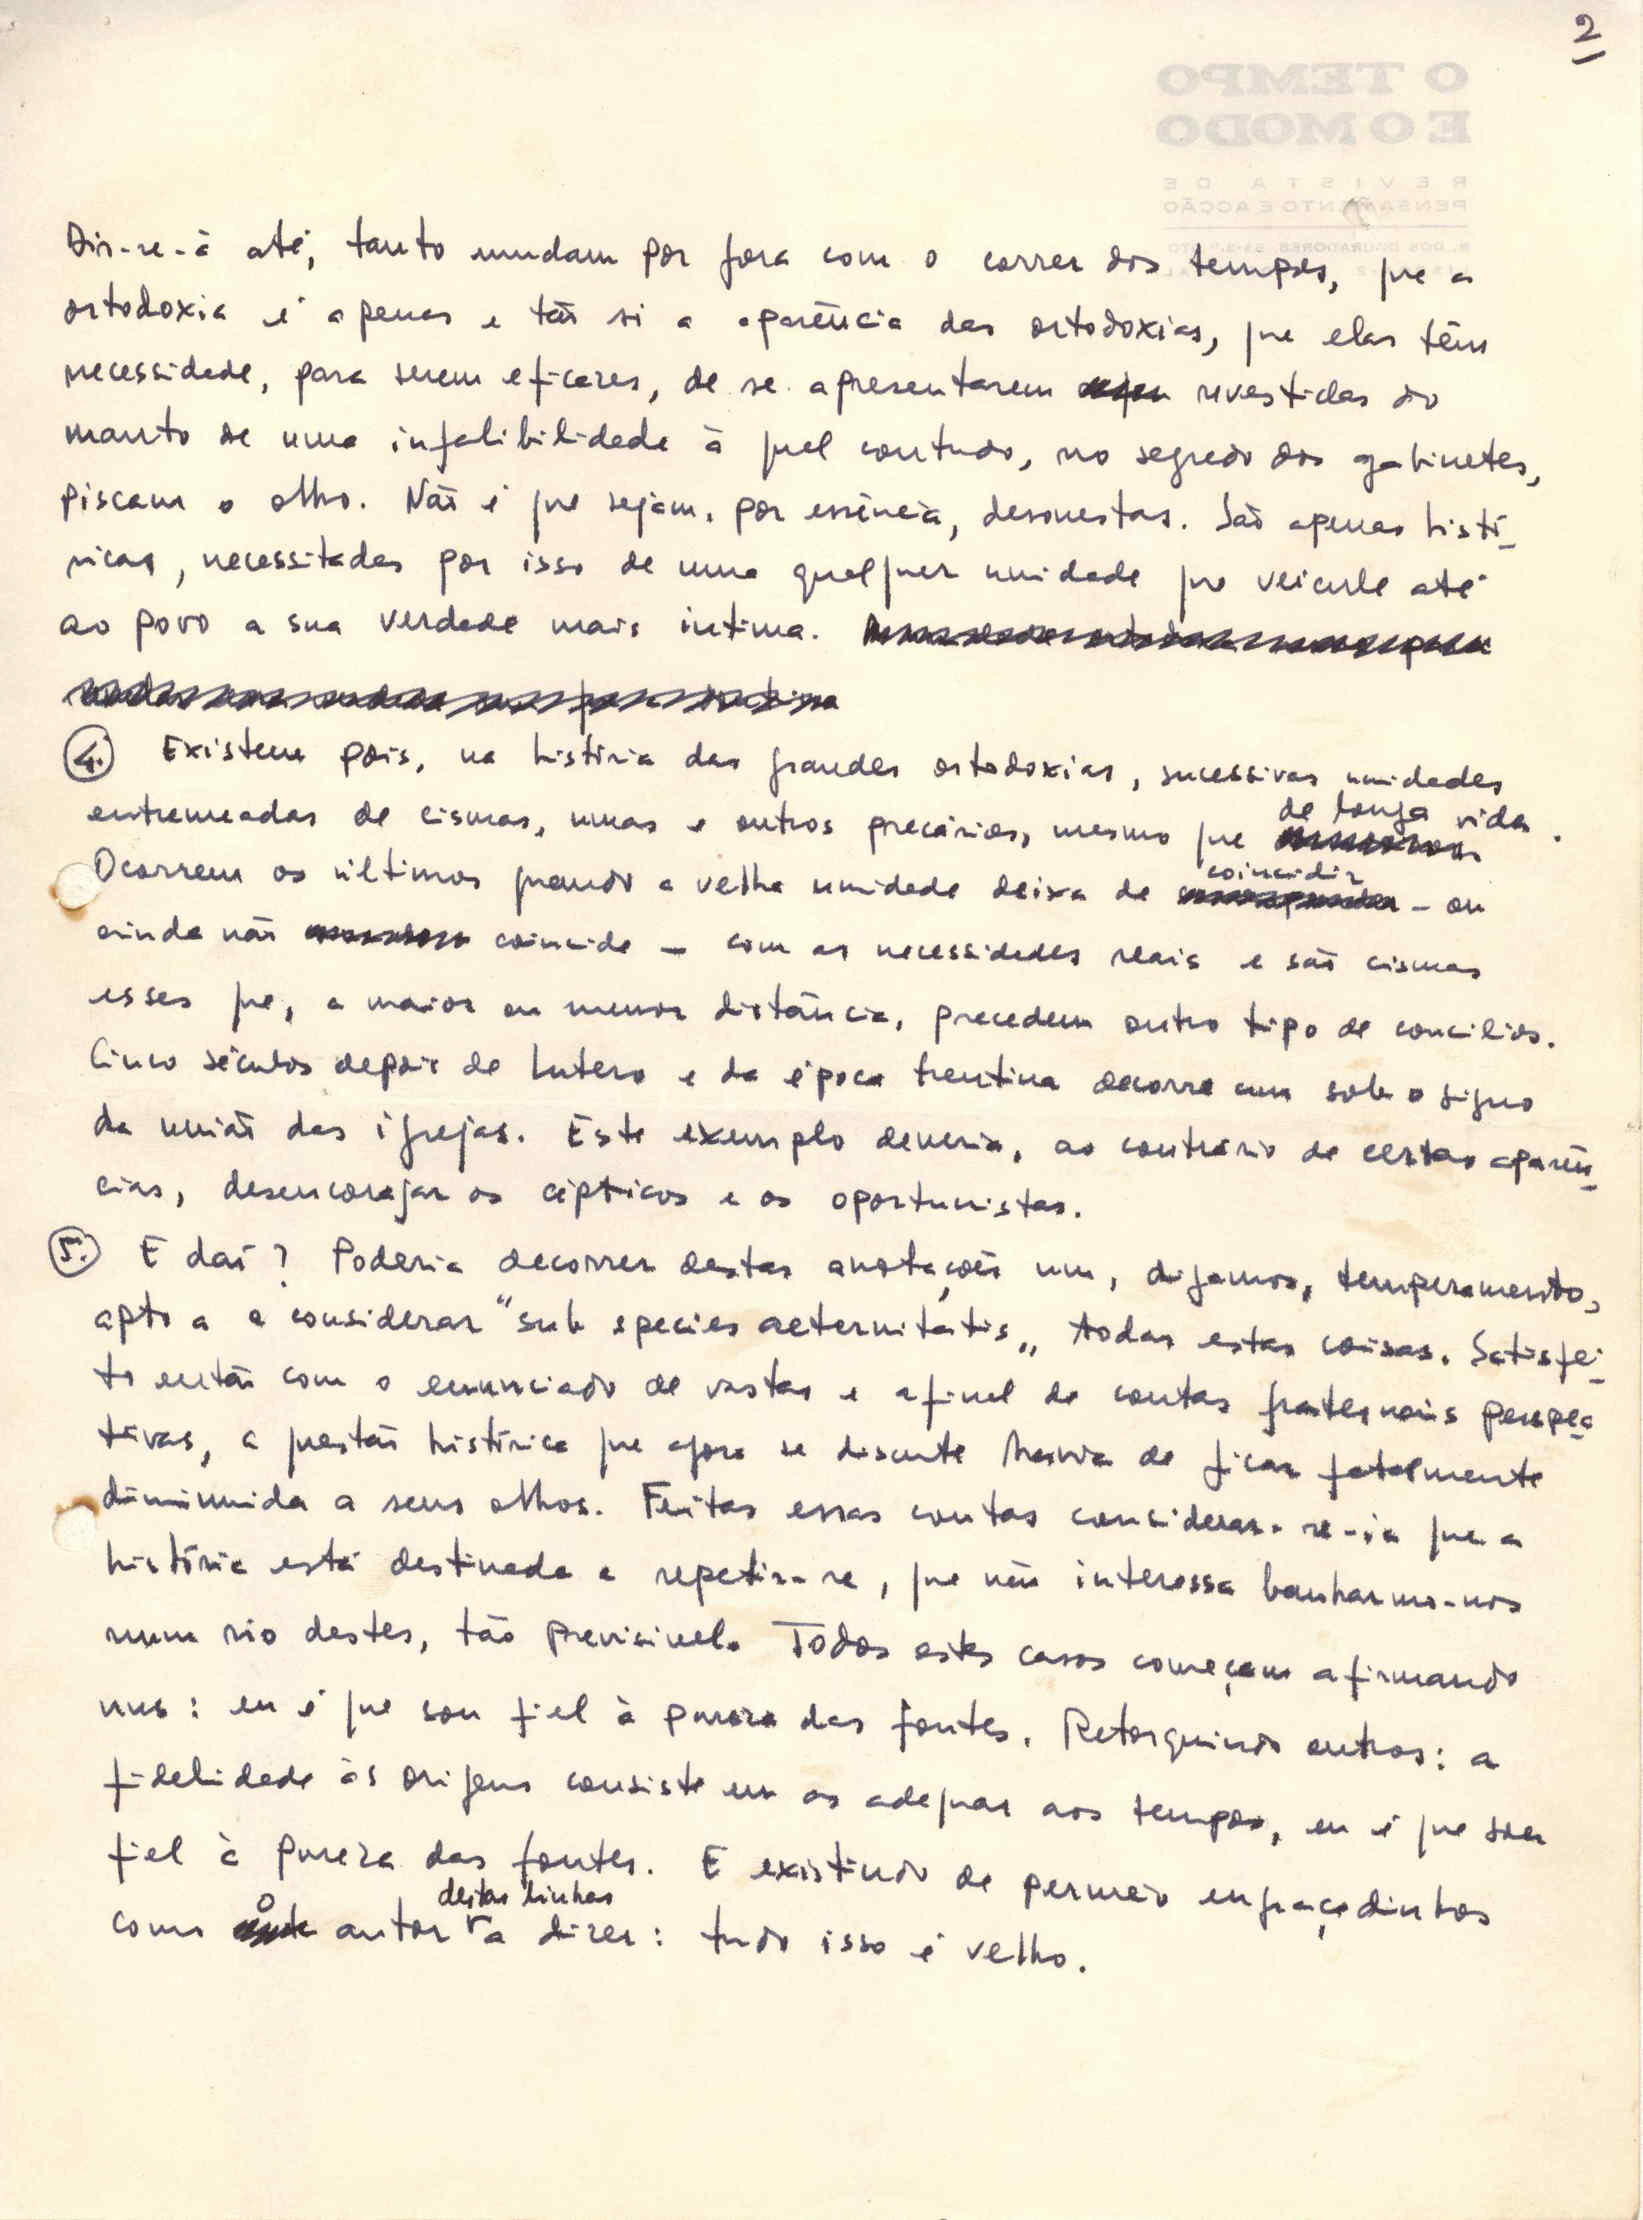 2
O TEMPO
E O MODO
REVISTA DE
PENSAMENTO E ACÇÃO
Dir-se-á até, tanto mudam por fora com o correr dos tempos, que a
ortodoxia é apenas e tão só a aparência das ortodoxias, que elas têm
necessidade, para serem eficazes, de se apresentarem revestidas do
manto de uma infalibilidade à qual contudo, no segredo dos gabinetes,
piscam o olho. Não é que sejam, por essência, desonestas. São apenas histó-
ricas, necessitadas por isso de uma qualquer unidade que veicule até
ao povo a sua verdade mais íntima.
4. Existem pois, na história das grandes ortodoxias, sucessivas unidades
entremeadas de cismas, umas e outros precários, mesmo que de longa vida.
Ocorrem os últimos quando a velha unidade deixa de coincidir - ou
ainda não coincide - com as necessidades reais e são cismas
esses que, a maior ou menor distância, precedem outro tipo de concílios.
Cinco séculos depois de Lutero e da época trentina decorre um sob o signo
da união das igrejas. Este exemplo deveria, ao contrário de certas aparên-
cias, desencorajar os cépticos e os oportunistas.
5. E daí? Poderia decorrer destas anotações um, digamos, temperamento,
apto a a considerar "sub species aeternitatis" todas estas coisas. Satisfei-
to então com o enunciado de vastas e afinal de contas fraternais perspec-
tivas, a questão histórica que agora se discute havia de ficar fatalmente
diminuida a seus olhos. Feitas essas contas considerar-se-ia que a
história está destinada a repetir-se, que não interessa banharmo-nos
num rio destes, tão previsível. Todos estes casos começam afirmando
uns: eu é que sou fiel à pureza das fontes. Retorquindo outros: a
fidelidade às origens consiste em as adequar aos tempos, eu é que sou
fiel à pureza das fontes. E existindo de permeio engraçadinhos
como o autor destas linhas a dizer: tudo isso é velho.